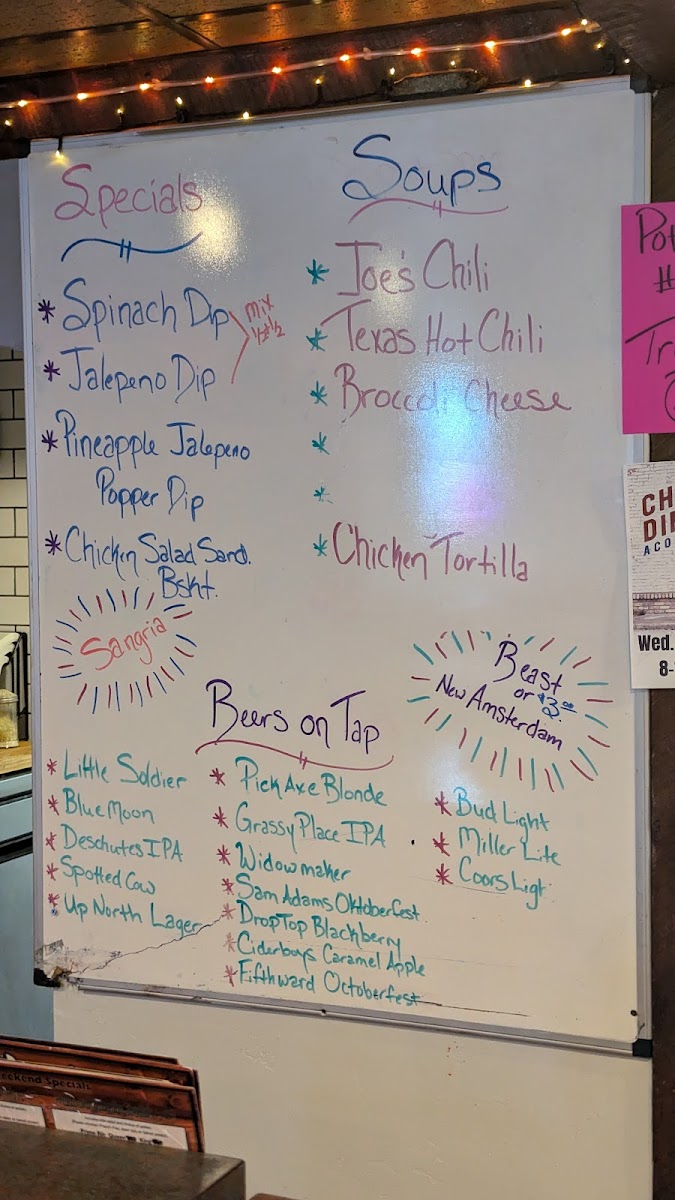 Specials
* Spinach Dip
* Jalepeno Dip
mix
1/2 + 1/2
* Pineapple Jalepeno
Popper Dip
* Chicken Salad Sand.
Bskt.
Sangria
Soups
* Joe's Chili
* Texas Hot Chili
* Broccoli Cheese
*
*
* Chicken Tortilla
Beast
or $3.00
New Amsterdam
Beers on Tap
* Little Soldier
* Blue Moon
* Deschutes IPA
* Spotted Cow
* Up North Lager
* Pick Axe Blonde
* Grassy Place IPA
* Widowmaker
* Sam Adams Oktoberfest
* Drop Top Blackberry
* Ciderboys Caramel Apple
* Fifth Ward Octoberfest
* Bud Light
* Miller Lite
* Coors Light
CH
DI
ACO
Wed.
8-
Weekend Specials